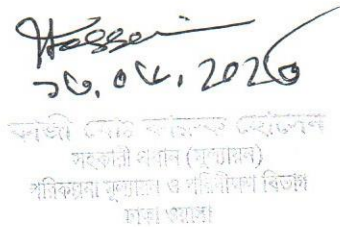 Hossain
১৬.০৮.২০২৬
কাজী মোঃ হোসেন
সহকারী প্রধান (মূল্যায়ন)
পরিকল্পনা মূল্যায়ন ও পরিবীক্ষণ বিভাগ
ঢাকা ওয়াসা